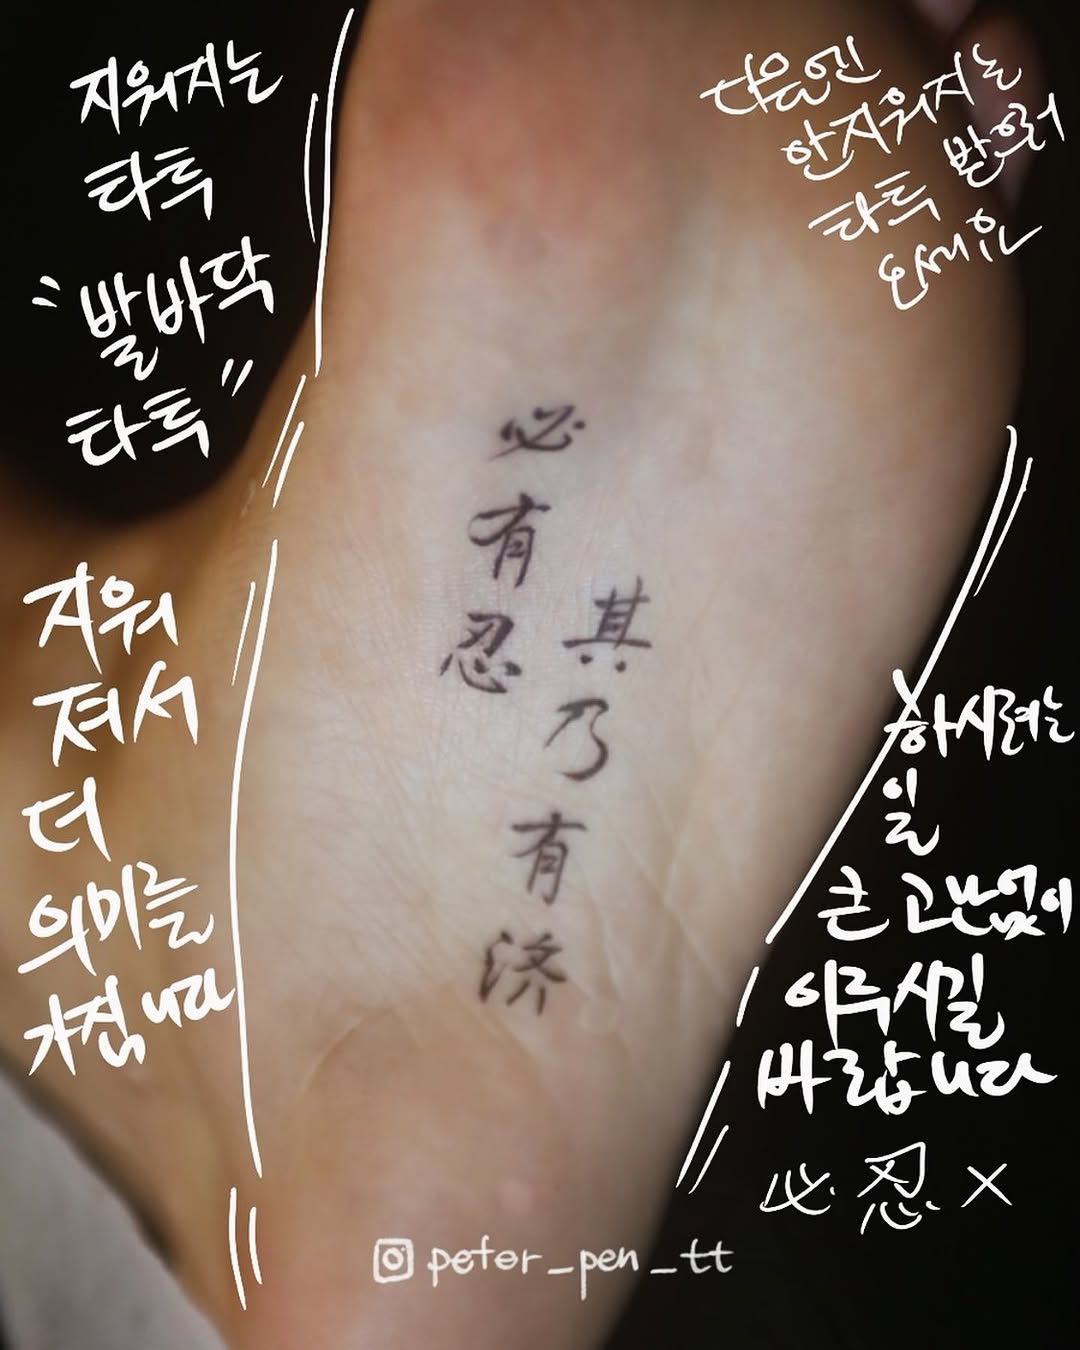 지워지는
타투
"발바닥
타투"
다음엔
안지워지는
타투 받으러
오세요
必
有
忍
其
乃
有
济
지워
져서
더
의미를
가집니다
하시려는
일
큰 고난없이
이루시길
바랍니다
必忍 X
peter_pen_tt